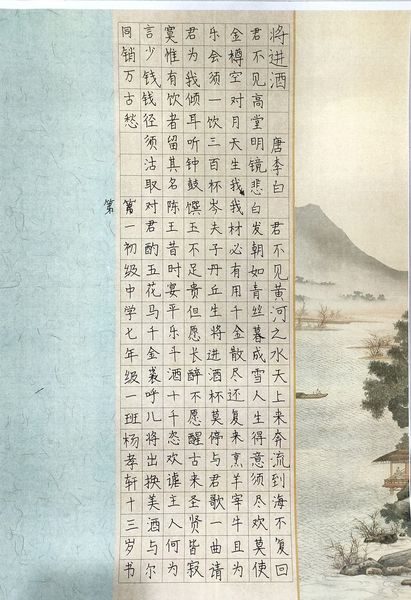 将进酒 唐李白 君不见黄河之水天上来奔流到海不复回
君不见高堂明镜悲白发朝如青丝暮成雪人生得意须尽欢莫使
金樽空对月天生我我材必有用千金散尽还复来烹羊宰牛且为
乐会须一饮三百杯岑夫子丹丘生将进酒杯莫停与君歌一曲请
君为我倾耳听钟鼓馔玉不足贵但愿长醉不愿醒古来圣贤皆寂
寞惟有饮者留其名陈王昔时宴平乐斗酒十千恣欢谑主人何为
言少钱钱径须沽取对君酌五花马千金裘呼儿将出换美酒与尔
同销万古愁 第一初级中学七年级一班杨孝轩十三岁书
第